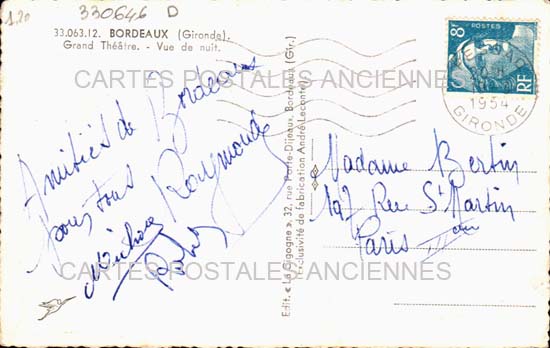 1.20
330646 D
33.063.12. BORDEAUX (Gironde).
Grand Théâtre. - Vue de nuit.
8F
POSTES
RF
1954
GIRONDE
CARTES POSTALES ANCIENNES
Amitiés de Bordeaux
pour tous
Raymonde
Robert
Edit. « La Gigogne », 32, rue Porte-Dijeaux, Bordeaux (Gir.)
Exclusivité de fabrication André Leconte
Madame Bertin
197 Rue St Martin
Paris III
CARTES POSTALES ANCIENNES